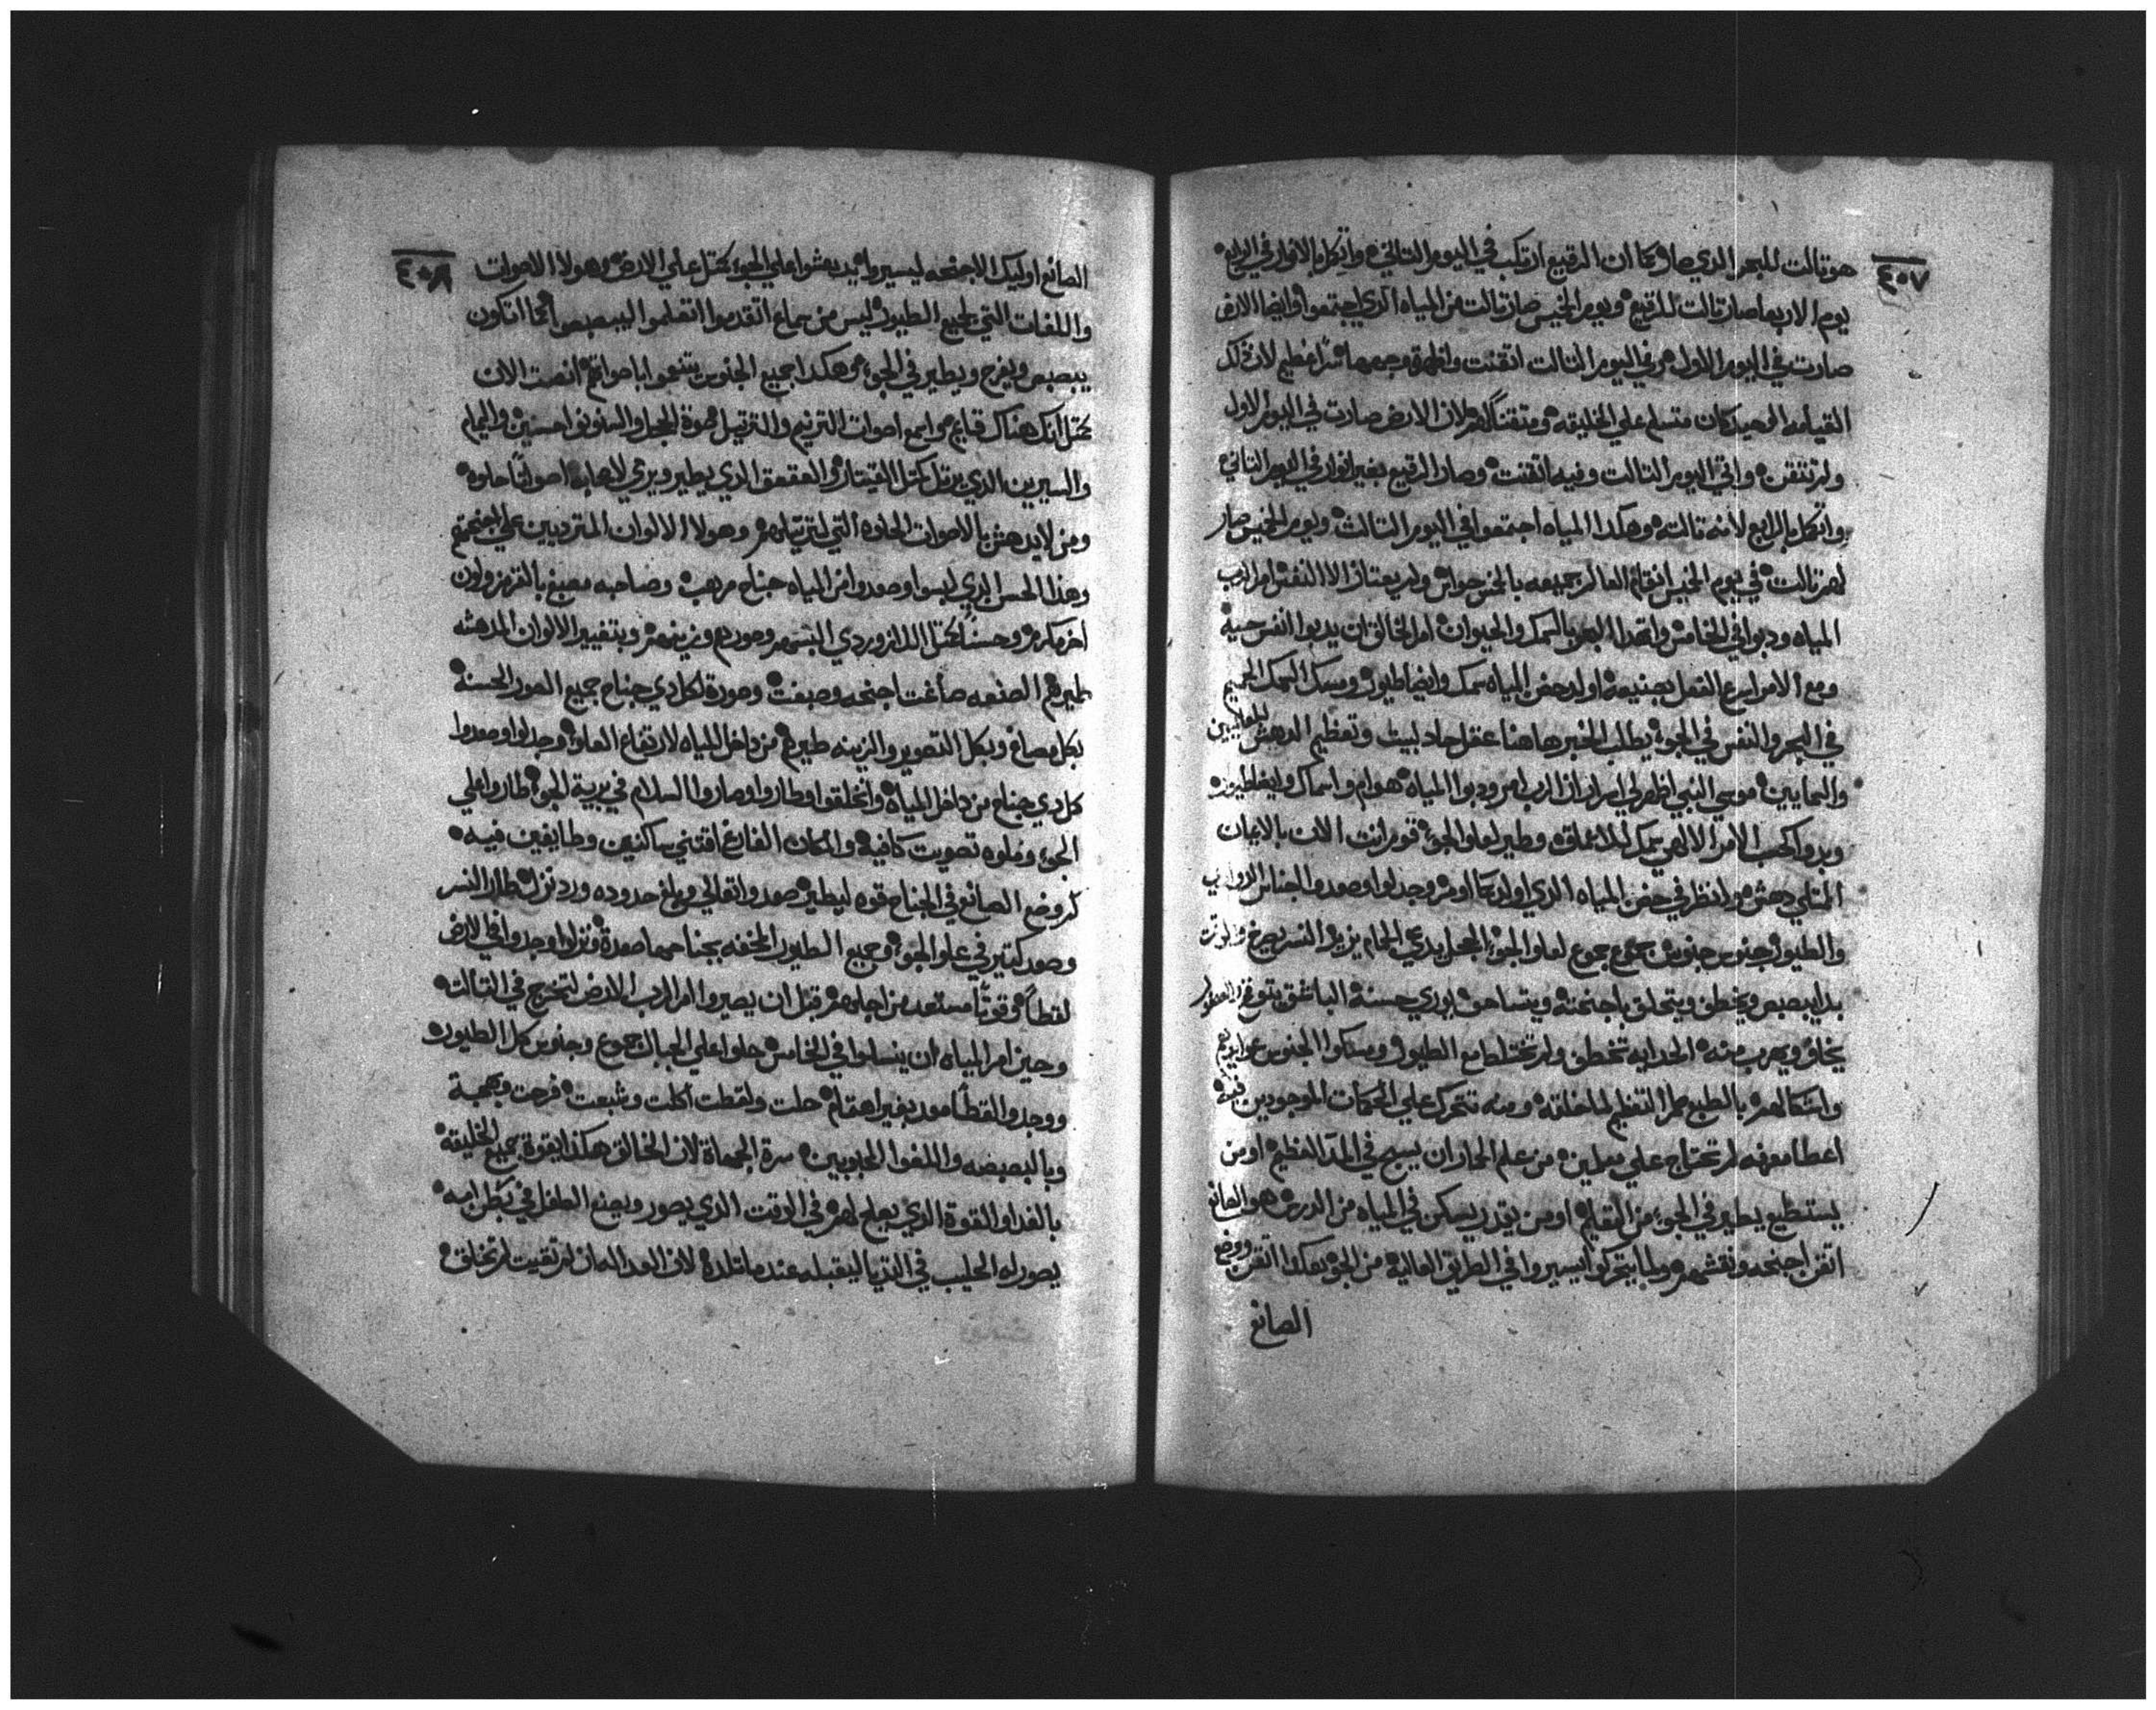 ٤٥٧
هو تالت للبحر الذي صار كما ان الرقيع ارتكب في اليوم التاني وانكمل بالانوار في الرابع
يوم الاربعا صار تالت للرقيع ويوم الخميس صار تالت من المياه الذي اجتمعوا وايضا الارض
صارت في اليوم الاول وفي اليوم التالت اتقنت واظهرة وجهها سرا عظيم لان تلك
القيامه الوحيد كان متسلم علي الخليقه ومتقنا لهم لان الارض صارت في اليوم الاول
ولم تتقن واتي اليوم التالت وفيه اتقنت وصار الرقيع بغير انوار في اليوم التاني
وانكمل بالرابع لانه تالته وهكدا المياه اجتمعوا في اليوم التالت ويوم الخميس صار
لهم تالت في يوم الخميس انقام العالم جميعه بالخمس حواس ولم يعتاز الا النفس امر الرب
المياه ودبوا في الخامس وابتدا البحر بالسمك والحيوان امر الخالق ان يدبوا النفس حييه
ومع الامر اسرع الفعل بصنيعه اولد حضن المياه سمك وايضا طيور ومسك السمك الجسيم
في البحر والنفس في الجو يطلب الخبر هاهنا عقل حاد لبيت وتعظيم الدهش
والسمايين موسي النبي اظهر لي اسرار ان الرب امر ودبوا المياه هوام واسماك وايضا طيور
وبدوا كحسب الامر الالهي سمك للاعماق وطير لعلو الجو قوم انت الان بالايمان
المتلي دهش وانظر في حضن المياه الذي اولد كما اومر وجدلوا وصعدوا اجناس
والطيور جنوس جنوس جموع جموع لعلو الجو الحجل يدعي الحمام يزير النسر يصرخ
بدا يبصبص ويخطف ويتحلق باجنحته ويتساحق بوري حسنة الباشق يتوغز العصفور
يخاف ويهرب منه الحدايه تخطف ولم تختلط مع الطيور ومسكوا الجنوس عوايدهم
واشكالهم بالطبع طمر التعظيم لما خلقه ومنه تتحرك علي الحكمات الموجودين فيه
اعطا معرفه لم تحتاج علي معلمين من علم الحار ان يسبح في الماء العظيم او من
يستطيع يطير في الجو من التعليم او من يقدر يسكن في المياه من الدرس هو الصانع
اتقن اجنحه ونقشهم ولما يتحركوا ليسيروا في الطريق العاليه من الجو هكدا اتقن ووضع
الصانع
٤٥٨
الصانع اوليك الاجنحه ليسيروا يدبشوا علي الجو كمتل علي الارض وهولا الاصوات
واللغات التي لجميع الطيور ليس من سماع اتقدموا اتعلموا ليبصبصوا كما اتكون
يبصبص ويفرح ويطير في الجو وهكدا جميع الجنوس يتنعموا باصواتهم انصت الان
كمتل انك هناك قايم واسمع اصوات الترنيم والترتيل صوة الحجل والسنونو احسنين واليمام
والسيرين الذي يرتل كمتل القيتار والعقعق الذي يطير ويرمي لاصحابه اصواتا حلوه
ومن لا يدهش بالاصوات الحلوه التي لترتيلهم وهولا الالوان المترديين علي اجنحتهم
وهذا الحسن الذي لبسوا وصعدوا من المياه جناح مرهب وصاحبه مصبغ بالقرمز ولون
اخر مكرم وحسنا كمتل اللازوردي البسهم وصورهم وزينهم وبتغيير الالوان المدهشه
طيرهم الصنعه صاغت اجنحه وصبغت وصورة لكل دي جناح جميع الصور الحسنة
بكل مصاغ وبكل التصوير والزينه طيرهم من داخل المياه لارتفاع العلو وجدلوا وصعدوا
كل دي جناح من داخل المياه واتخلقوا وطاروا وصاروا السلام في برية الجو طاروا علي
الجو وملوه تصويت كافيه والمكان الفارغ اقتني ساكنين وطايفين فيه
لم وضع الصانع في الجناح قوه ليطير صعد واتعالي وبلغ حدوده ورد نزل طار النسر
وصعد كتير في علو الجو وجميع الطيور المخفه بجناحهما صعدة ونزلوا وجدوا في الارض
لقطا وقوتا مستعد من اجلهم قبل ان يصيروا امر الرب الارض لتخرج في التالته
وحين امر المياه ان ينسلوا في الخامس حلوا علي الجبال جموع وجنوس كل الطيور
ووجدوا لقطا معد بغير اهتمام حلت ولقطت اكلت وشبعت فرحت وبهجة
وبالبصبصه واللغوا المحبوبين سرة الجهاة لان الخالق هكدا يقوة جميع الخليقه
بالغدا والقوة الذي يصلح لهم في الوقت الذي يصور ويصنع الطفل في بطن امه
يصور له الحليب في التديا ليقبله عندما تلده لان العداله ان لم تقيت لم تخلق